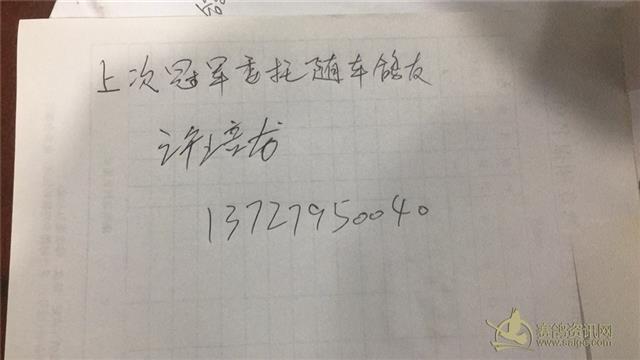 上次冠军委托随车鸽友
许培龙
13727950040
赛鸽资讯网
www.saige.com